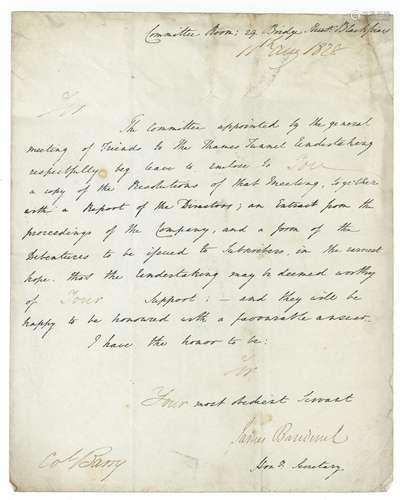 Committee Room: 29 Bridge Street Blackfriars
11th Augt 1828
Sir
The Committee appointed by the general
meeting of Friends to the Thames Tunnel Undertaking
respectfully beg leave to enclose to You
a copy of the Resolutions of that Meeting, together
with a Report of the Directors; an Extract from the
proceedings of the Company, and a form of the
Debentures to be issued to Subscribers, in the earnest
hope that the Undertaking may be deemed worthy
of Your Support: – and they will be
happy to be honoured with a favourable answer.
I have the honor to be:
Sir
Your most obedient Servant
James Bandinel
Hony. Secretary.
Col. Barry